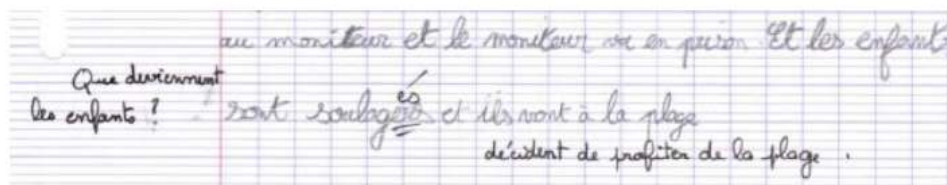 au moniteur et le moniteur va en prison Et les enfants
Que deviennent
les enfants ?
sont soulagers et ils vont à la plage
és
décident de profiter de la plage .